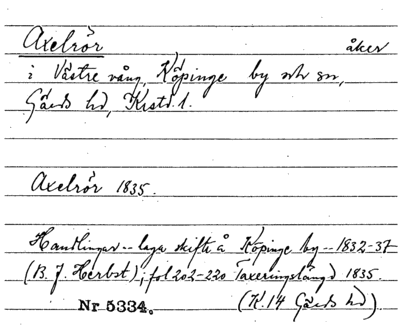 Axelrör åker
i Västre vång, Köpinge by och sn,
Gärds hd, Krstd. l.
Axelrör 1835.
Handlingar -- laga skifte å Köpinge by -- 1832-37
(B. J. Herbst); fol 202-220 Taxeringslängd 1835.
Nr 5334. (K. 14 Gärds hd)